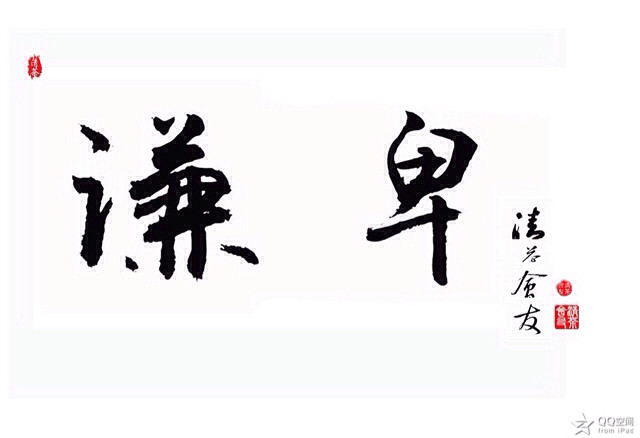 谦卑
清茶會友
QQ空间
from iPad